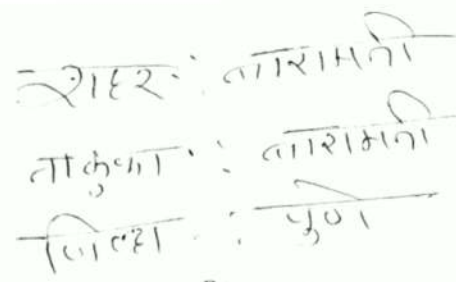 शहर : बारामती
तालुका : बारामती
जिल्हा : पुणे